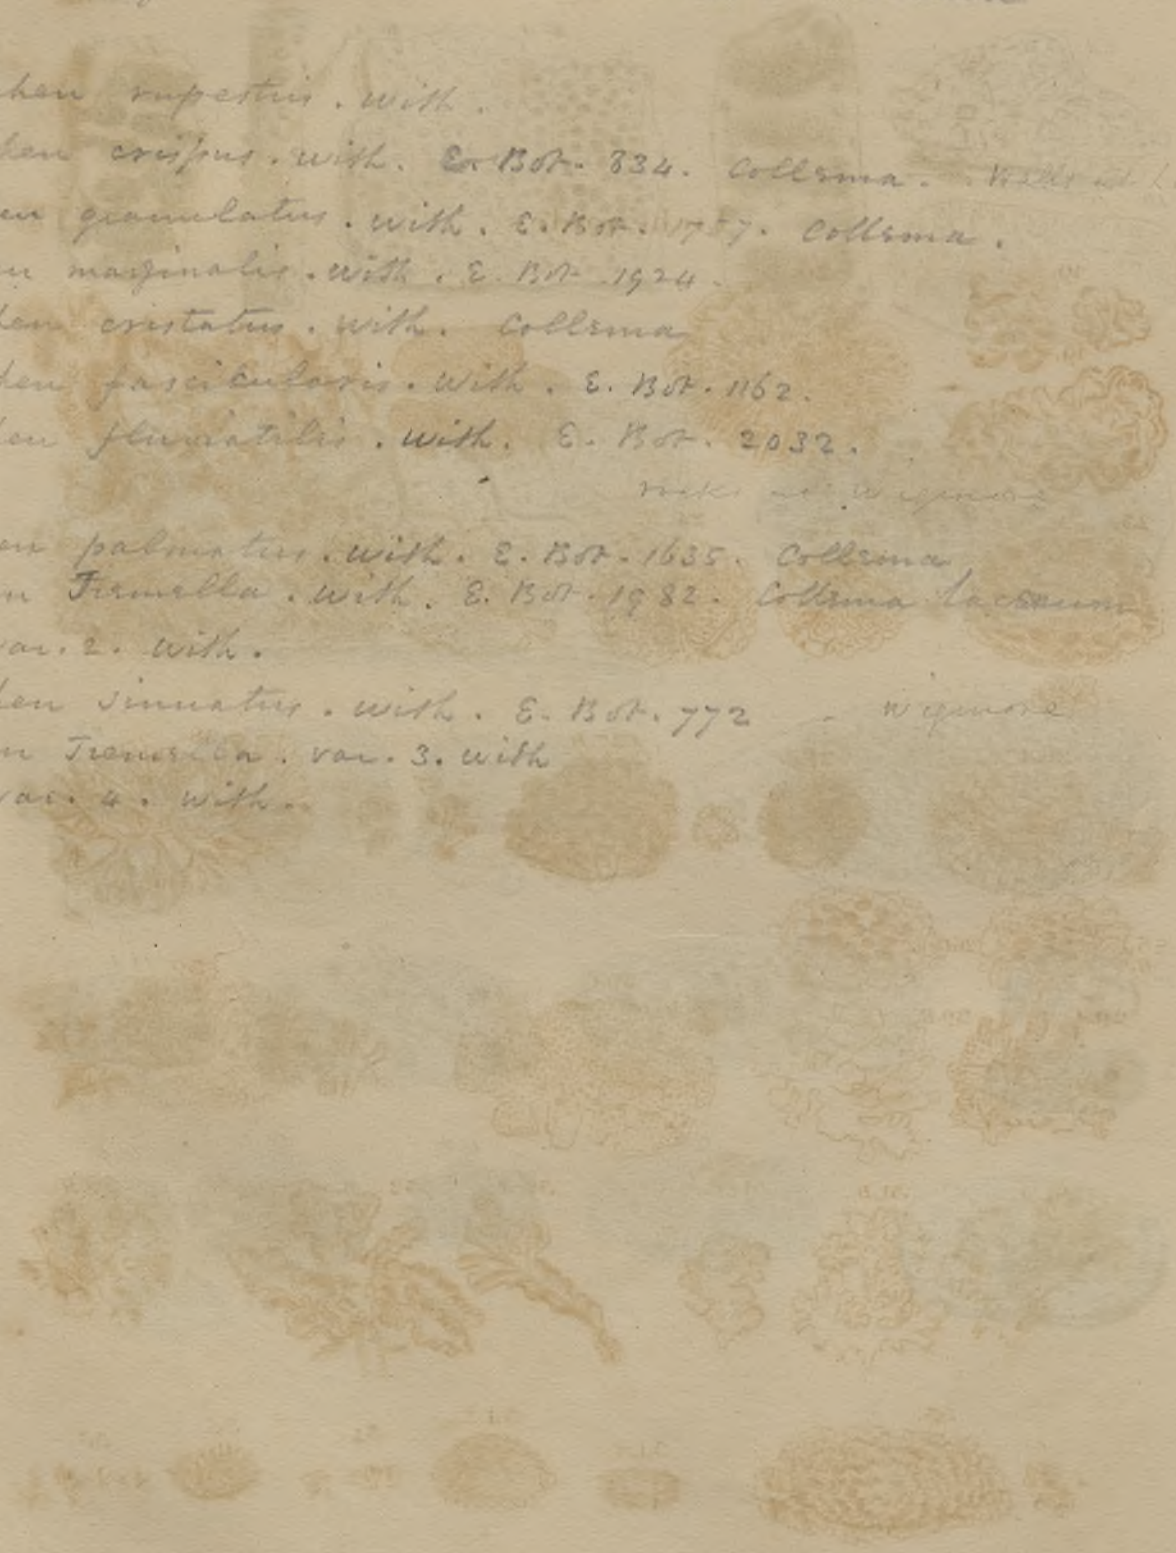 hen rupestris . With .
hen crispus . With . E. Bot. 834. Collema .
en granulatus . With . E. Bot. 1757. Collema .
en marginalis . With . E. Bot. 1924 .
hen cristatus . With . Collema
hen fascicularis . With . E. Bot. 1162 .
hen fluviatilis . With . E. Bot. 2032 .
rocks at Wigmore
en palmatus . With . E. Bot. 1635. Collema
en Tremella . With . E. Bot. 1982. Collema lacerum
var. 2. With .
hen sinuatus . With . E. Bot. 772 Wigmore
en Tremella . var. 3. With
var. 4. With .